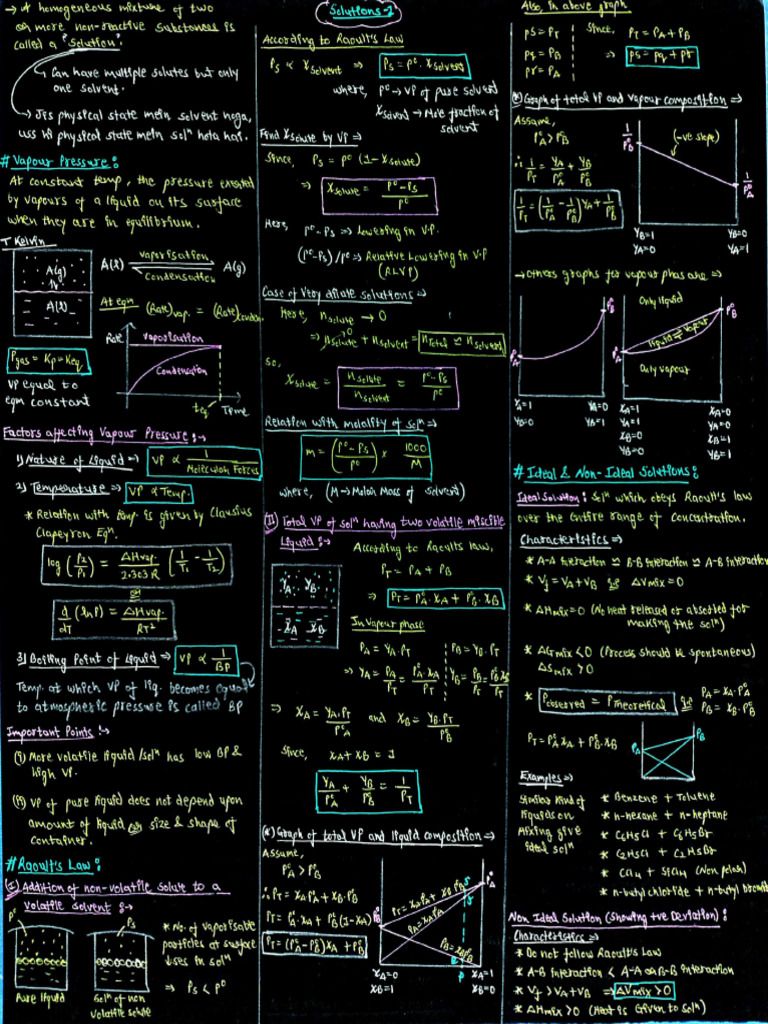 → A homogeneous mixture of two
or more non-reactive substances is
called a "solution".
↳ Can have multiple solutes but only
one solvent.
→ Jis physical state mein solvent hoga,
uss hi physical state mein solⁿ hota hai.
# Vapour Pressure:
At constant temp, the pressure exerted
by vapours of a liquid on its surface
when they are in equilibrium.
T Kelvin
A(g)
A(l)
A(l) ⇌ A(g)
vaporisation
condensation
At eqm (Rate)vap. = (Rate)conden.
Pgas = Kp = Keq
VP equal to
eqm constant
Rate
vaporisation
Condensation
teq Time
Factors affecting Vapour Pressure:→
1) Nature of Liquid ⇒ VP ∝ 1/Molecular Forces
2) Temperature ⇒ VP ∝ Temp.
* Relation with temp. is given by Clausius
Clapeyron Eqⁿ.
log (P2/P1) = ΔHvap./2.303R (1/T1 - 1/T2)
or
d/dT (ln P) = ΔHvap./RT²
3) Boiling Point of Liquid ⇒ VP ∝ 1/BP
Temp. at which VP of liq. becomes equal
to atmospheric pressure is called BP
Important Points :→
(i) More volatile liquid/solⁿ has low BP &
high VP.
(ii) VP of pure liquid does not depend upon
amount of liquid or size & shape of
container.
# Raoult's Law:
(I) Addition of non-volatile solute to a
volatile solvent :→
P° Ps
Pure liquid
Solⁿ of non
volatile solute
* No. of vaporisable
particles at surface
↓ses in solⁿ
⇒ Ps < P°
Solutions-1
According to Raoult's Law
Ps ∝ Xsolvent ⇒ Ps = P°. Xsolvent
where, P° → VP of pure solvent
Xsolvent → Mole fraction of
solvent
Find Xsolute by VP ⇒
Since, Ps = P° (1 - Xsolute)
⇒ Xsolute = P°-Ps/P°
Here, P°-Ps ⇒ Lowering in V.P.
(P°-Ps)/P° ⇒ Relative Lowering in V.P
(RLVP)
Case of Very dilute solutions ⇒
Here, nsolute → 0
⇒ nsolute + nsolvent = nTotal ≃ nsolvent
So,
Xsolute = nsolute/nsolvent = P°-Ps/P°
Relation with molality of solⁿ ⇒
m = (P°-Ps/P°) × 1000/M
where, (M → Molar Mass of Solvent)
(II) Total VP of solⁿ having two volatile miscible
Liquid :→
According to Raoults law,
PT = PA + PB
⇒ PT = P°A.XA + P°B.XB
YA YB
XA XB
In vapour phase
PA = YA.PT PB = YB.PT
⇒ YA = PA/PT = P°A.XA/PT YB = PB/PT = P°B.XB/PT
⇒ XA = YA.PT/P°A and XB = YB.PT/P°B
Since, XA + XB = 1
YA/P°A + YB/P°B = 1/PT
(*) Graph of total VP and liquid composition ⇒
Assume,
P°A > P°B
∴ PT = XA P°A + XB.P°B
PT = P°A.XA + P°B(1-XA)
PT = (P°A-P°B)XA + P°B
P°B
PT = XAP°A + XBP°B
PA = XAP°A
PB = XBP°B
P°A
S
r
q
P
XA=0 XA=1
XB=1 XB=0
Also, in above graph
PS = PT Since, PT = PA + PB
PS = PB ⇒ PS = Pq + Pr
Pr = PA
(*) Graph of total VP and vapour composition ⇒
Assume,
P°A > P°B
∴ 1/PT = YA/P°A + YB/P°B
1/PT = (1/P°A - 1/P°B)YA + 1/P°B
1/P°B
(-ve slope)
1/P°A
YB=1 YB=0
YA=0 YA=1
→ Others graphs for vapour phas are ⇒
P°A P°B
YA=1 YA=0
YB=0 YB=1
Only liquid
liquid ⇌ vapour
Only vapour
P°A P°B
XA=1 XA=0
YA=1 YA=0
XB=0 XB=1
YB=0 YB=1
# Ideal & Non-Ideal Solutions:
Ideal Solution: Solⁿ which obeys Raoult's law
over the entire range of concentration.
Characteristics ⇒
* A-A interaction ≃ B-B interaction ≃ A-B interaction
* Vf = VA + VB ΔVmix = 0
* ΔHmix = 0 (No heat released or absorbed for
making the solⁿ)
* ΔGmix < 0 (Process should be spontaneous)
ΔSmix > 0
* Pobserved = PTheoretical PA = XA.P°A
PB = XB.P°B
PT = P°A XA + P°B.XB
P°A P°B
Examples ⇒
Similar kind of
liquids on
Mixing give
ideal solⁿ
* Benzene + Toluene
* n-hexane + n-heptane
* C6H5Cl + C6H5Br
* C2H5Cl + C2H5Br
* CCl4 + SiCl4 (Non polar)
* n-butyl chloride + n-butyl bromide
Non Ideal Solution (Showing +ve Deviation):
Characteristics ⇒
* Do not follow Raoult's Law
* A-B interaction < A-A or B-B interaction
* Vf > VA + VB ⇒ ΔVmix > 0
* ΔHmix > 0 (Heat is Given to Solⁿ)